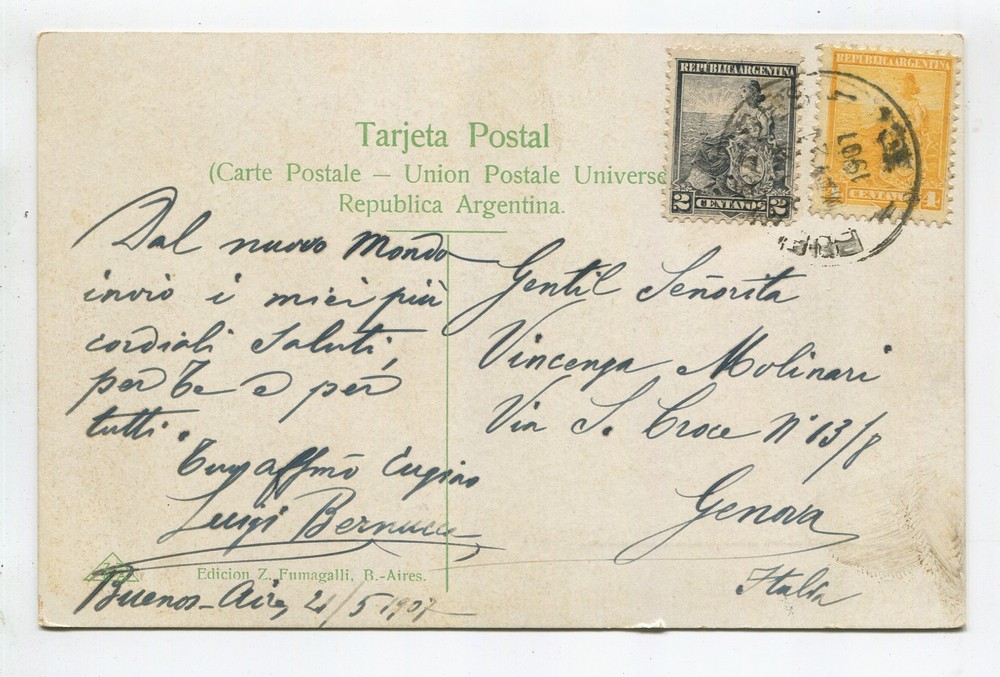 REPUBLICA ARGENTINA
2 CENTAVOS 2
REPUBLICA ARGENTINA
CENTAVOS 4
1907
Tarjeta Postal
(Carte Postale – Union Postale Universe
Republica Argentina.
Dal nuovo Mondo
invio i miei più
cordiali Saluti,
per Te e per
tutti.
Tuo affmo Cugino
Luigi Bernucci
Gentil Señorita
Vincenza Molinari
Via S. Croce N° 13/8
Genova
Italia
Edicion Z. Fumagalli, B.-Aires.
Buenos-Aires 21/5 1907